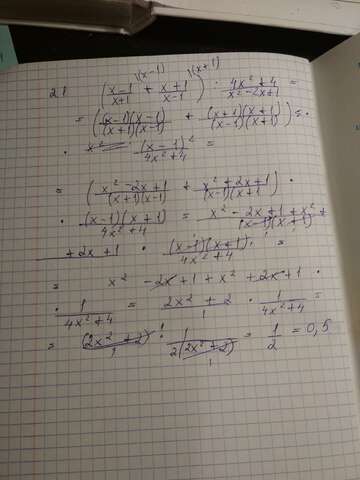 21 ( x-1/x+1 \(x-1) + x+1/x-1 \(x+1) ) : 4x²+4/x²-2x+1 =
= ( (x-1)(x-1)/(x+1)(x-1) + (x+1)(x+1)/(x-1)(x+1) ) = ·
· (x-1)²/4x²+4 =
= ( x²-2x+1/(x+1)(x-1) + x²+2x+1/(x-1)(x+1) ) ·
· (x-1)(x+1)/4x²+4 = x²-2x+1+x²+/(x-1)(x+1)
+2x+1 · (x-1)(x+1)/4x²+4 =
= x² -2x+1+x²+2x+1 ·
· 1/4x²+4 = 2x²+2/1 · 1/4x²+4 =
= (2x²+2)/1 · 1/2(2x²+2) = 1/2 = 0,5